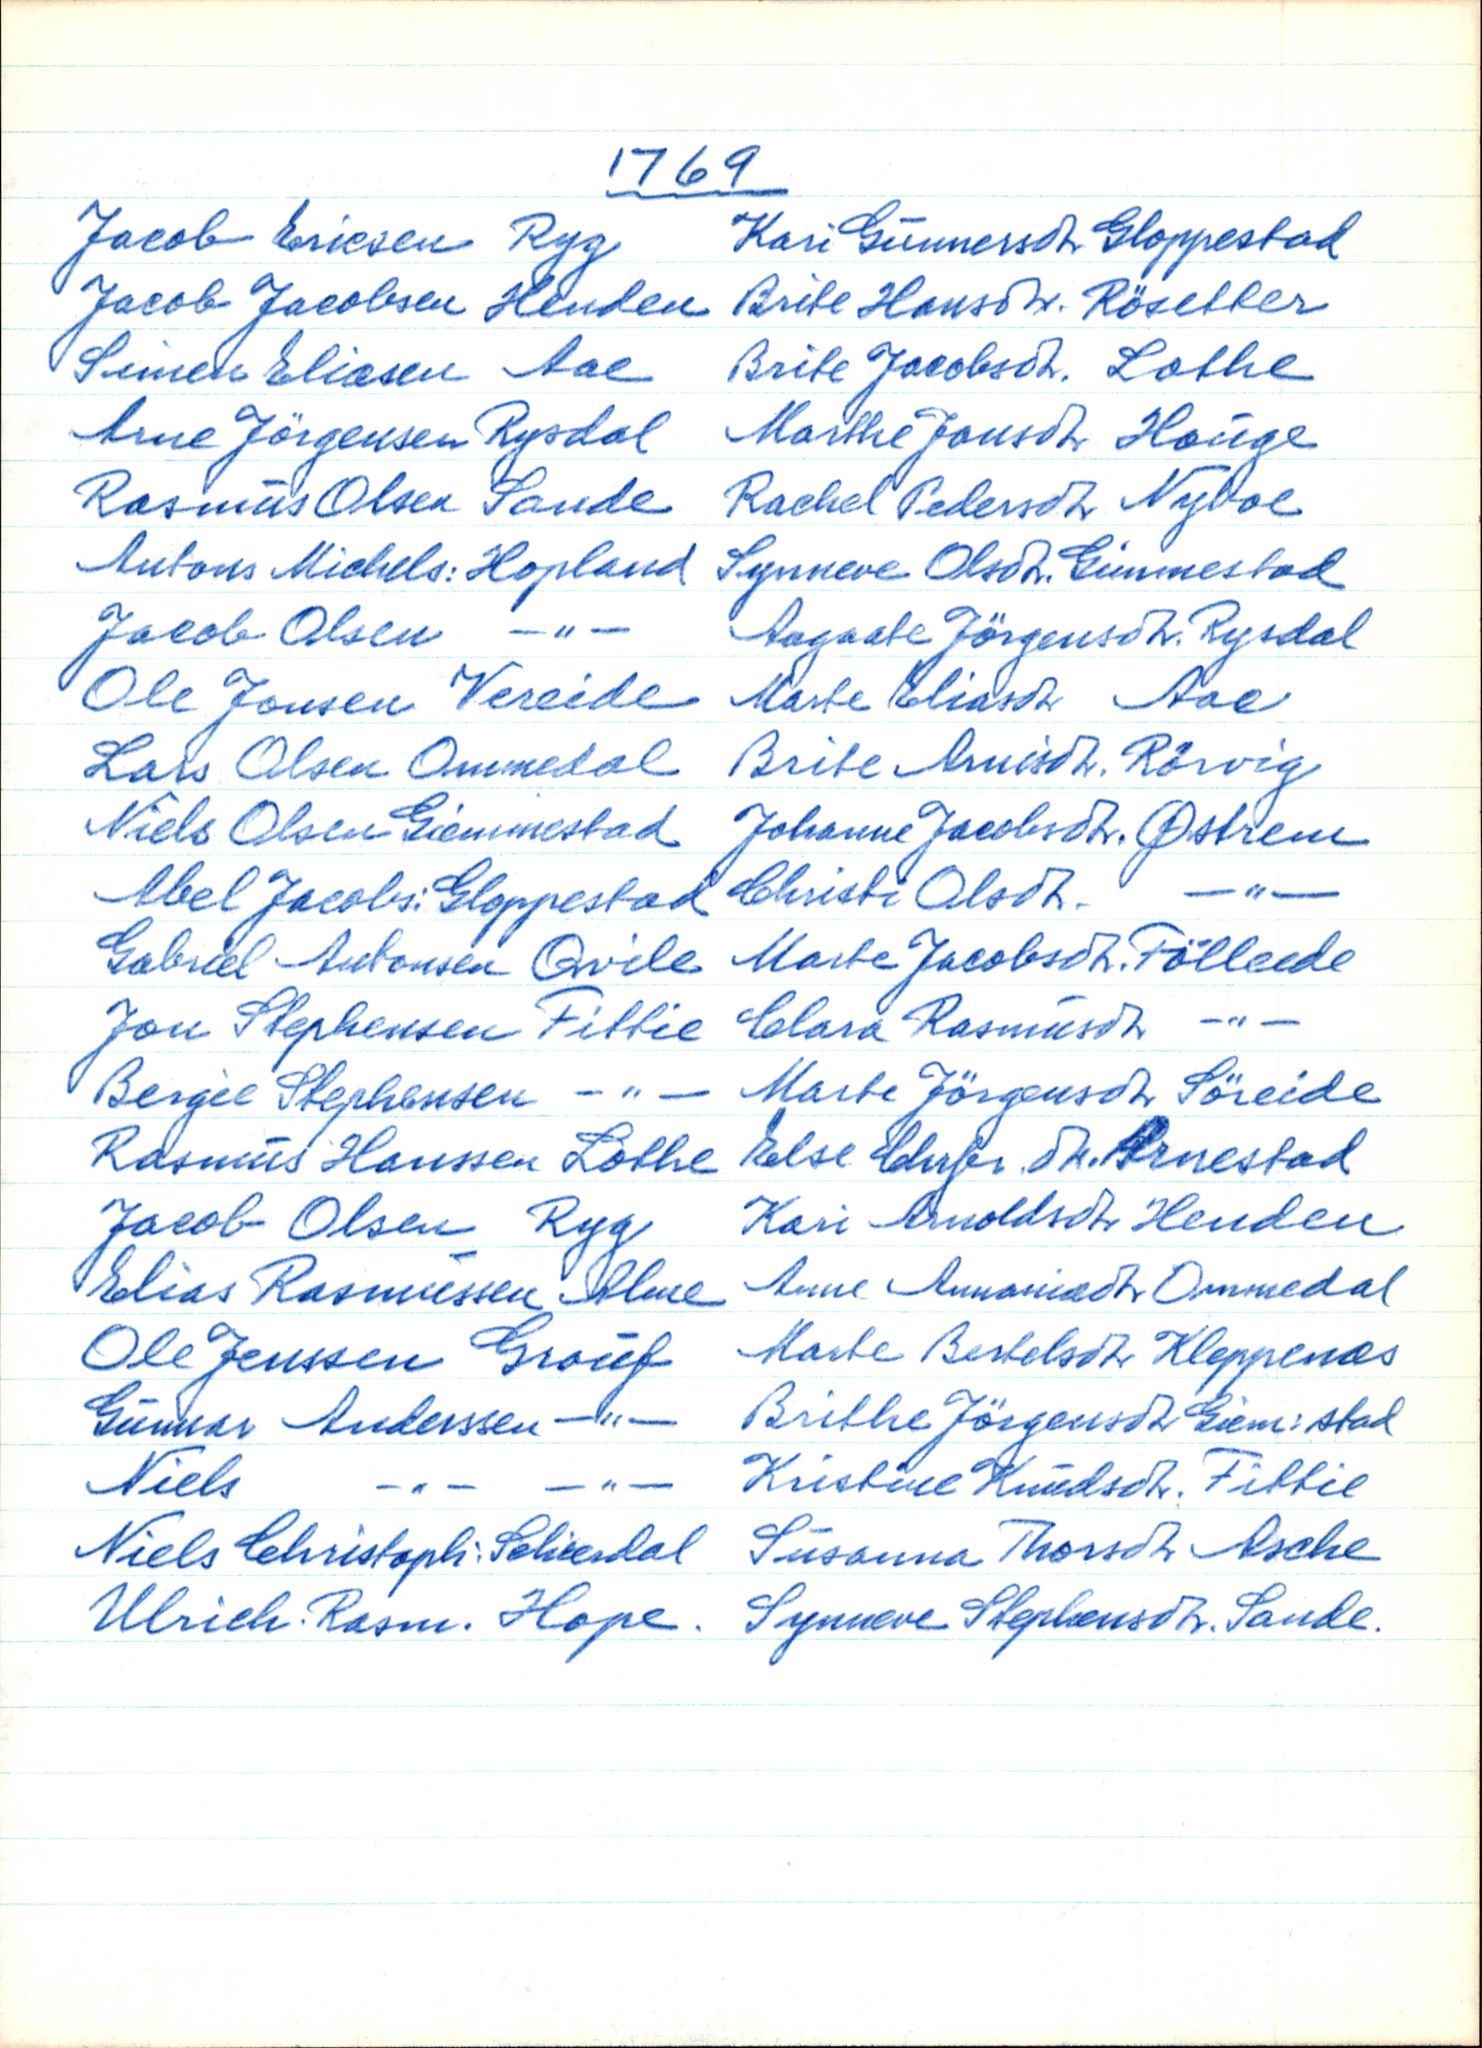 1769
Jacob Ericsen Ryg Kari Günnersdtr Gloppestad
Jacob Jacobsen Henden Brite Hansdtr. Rösetter
Simen Eliasen Aae Brite Jacobsdtr. Lothe
Arne Jörgensen Rysdal Marthe Jonsdtr Haüge
Rasmüs Olsen Sande Rachel Pedersdtr Nyboe
Antons Michels: Hopland Synneve Olsdtr. Gimmestad
Jacob Olsen -"- Aagaate Jörgensdtr. Rysdal
Ole Jonsen Vereide Marte Eliasdtr Aae
Lars Olsen Ommedal Brite Arnisdtr. Rörvig
Niels Olsen Giemmestad Johanne Jacobsdtr. Østrem
Abel Jacobs: Gloppestad Christi Olsdtr. -"-
Gabriel Antonsen Qvile Marte Jacobsdtr. Fölleide
Jon Stephensen Fittie Clara Rasmüsdtr -"-
Bergie Stephensen -"- Marte Jörgensdtr Söreide
Rasmüs Hanssen Lothe Else Chrfr. dtr. Arnestad
Jacob Olsen Ryg Kari Arnoldsdtr Henden
Elias Rasmüssen Alme Anne Annaniædtr Ommedal
Ole Jenssen Groüf Marte Bertelsdtr Kleppenæs
Günnar Anderssen -"- Brithe Jörgensdtr Giem: stad
Niels -"- -"- Kristine Knüdsdtr. Fittie
Niels Christoph: Scheerdal Süsanna Thorsdtr Asche
Ulrich Rasm. Hope. Synneve Stephensdtr. Sande.